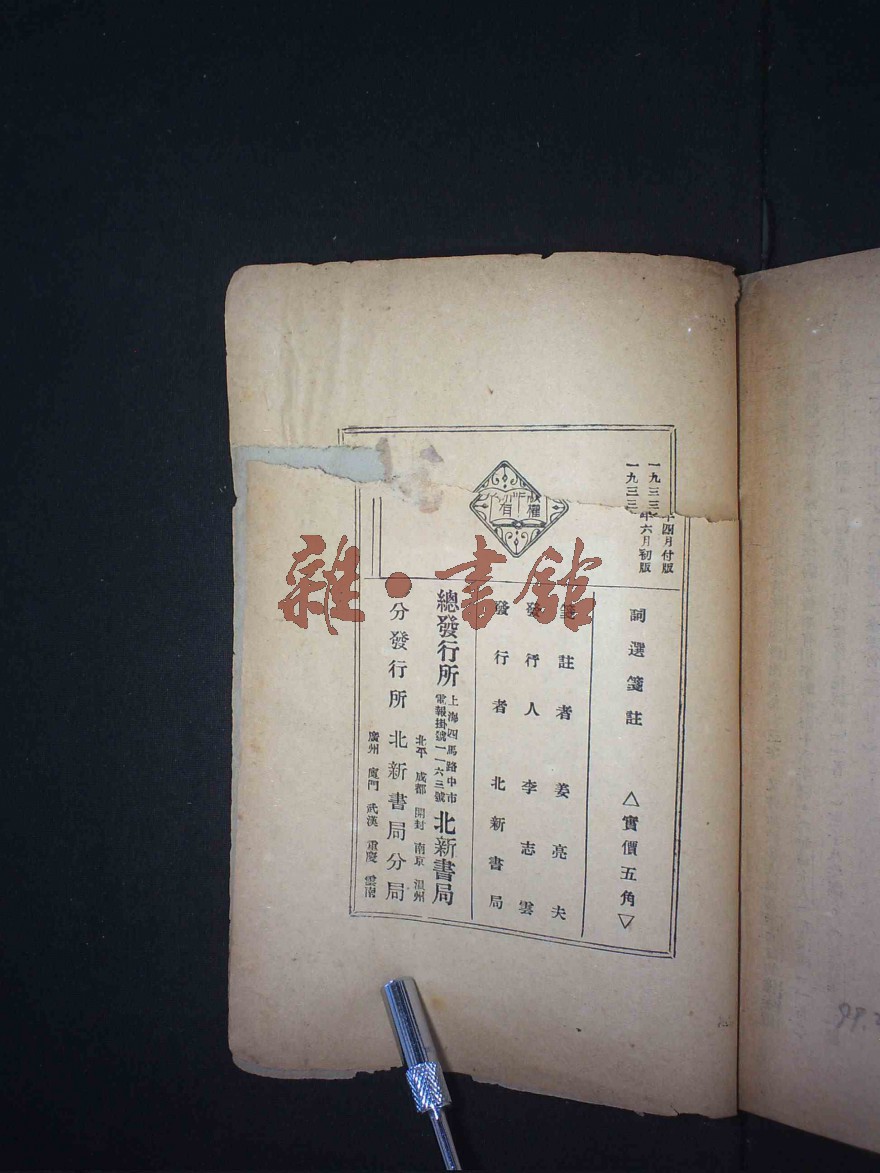 一九三三年四月付版
一九三三年六月初版
版權所有
詞選箋註 △實價五角▽
箋註者 姜亮夫
發行人 李志雲
發行者 北新書局
總發行所 上海四馬路中市 電報掛號一一六三號 北新書局
北平 成都 開封 南京 溫州
分發行所 北新書局分局
廣州 廈門 武漢 重慶 雲南
雜·書館